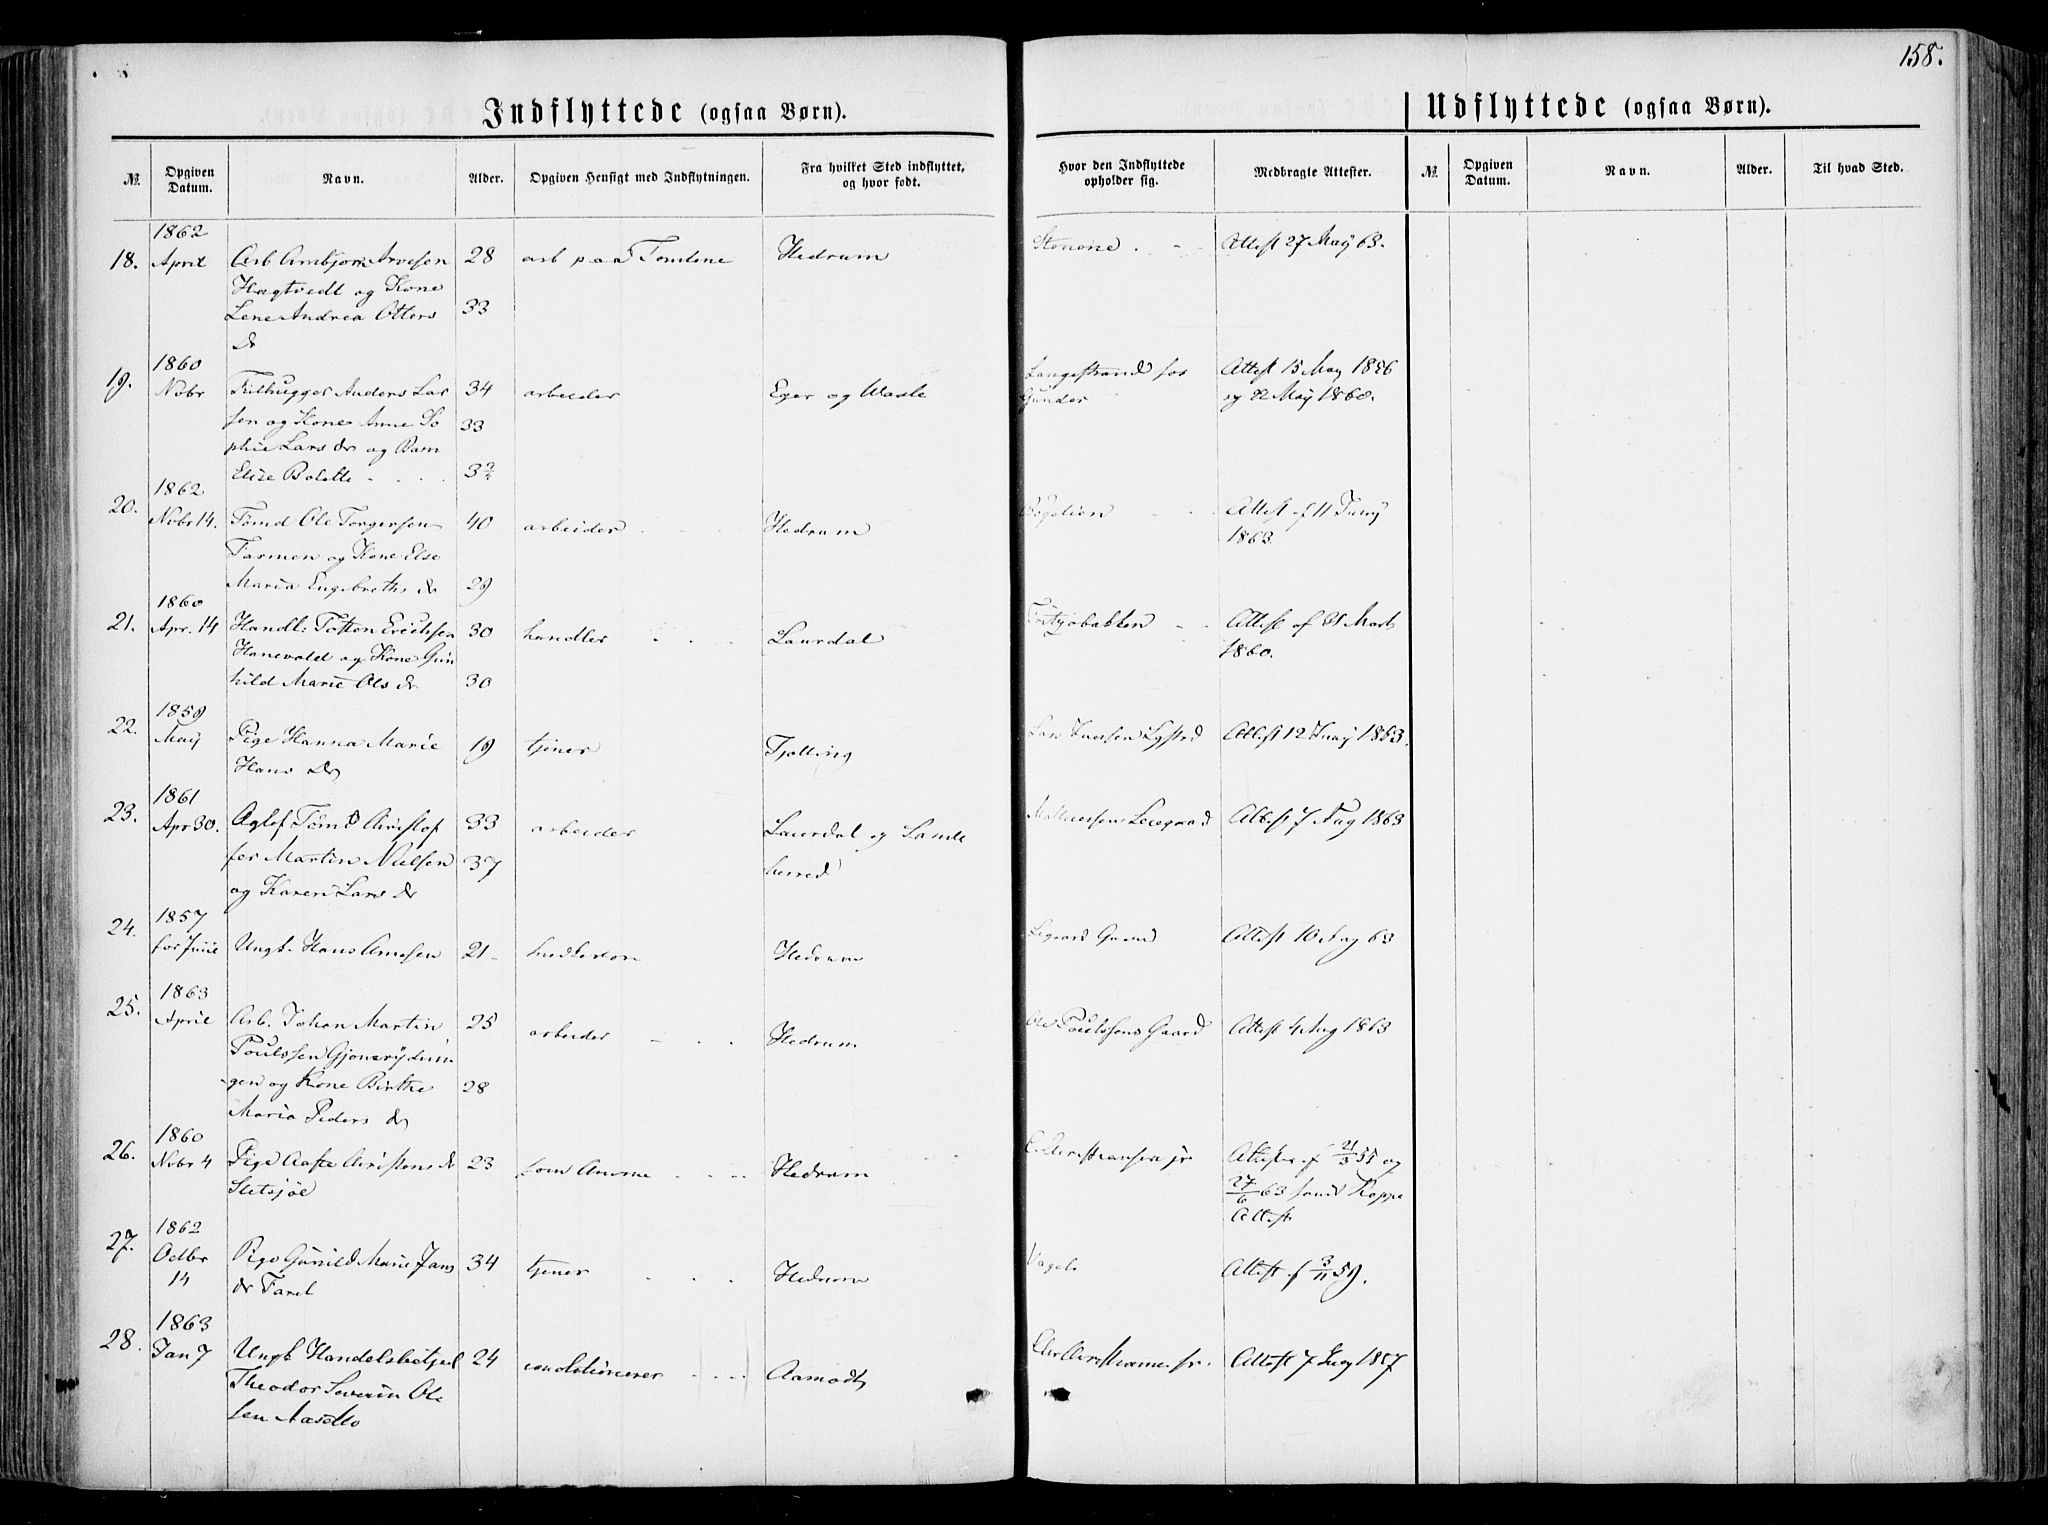 158.
Indflyttede (ogsaa Børn).
Udflyttede (ogsaa Børn).
No. Opgiven Datum. Navn. Alder. Opgiven Hensigt med Indflytningen. Fra hvilket Sted indflyttet, og hvor født. Hvor den Indflyttede opholder sig. Medbragte Attester. No. Opgiven Datum. Navn. Alder. Til hvad Sted.
1862
18. April Arb Arnbjørn Arvesen 28 arb paa Tomtene Hedrum Stenene Attest 27 May 63.
Hagtvedt og Kone
Lene Andrea Otters 33
dr
1860
19. Nobr Filhugger Anders Lar 34 arbeider Eger og Waale Langestrand hos Attest 15 May 1856
sen og Kone Anne So 33 Gunder og 22 May 1860.
phie Lars dr og Barn
Elise Bolette 3
1862
20. Nobr 14. Tømd Ole Torgersen 40 arbeider Hedrum Attest af 11 Juny
Farmen og Kone Else 1863
Maria Engebreths dr 29
1860
21. Apr. 14 Handl: Erichsen 30 handler Laurdal Attest af 31 Marts
Hanevold og Kone Gun 1860.
hild Marie Ols dr 30
1859
22. May Pige Hanna Marie 19 tjener Tjølling Attest 12 Juny 1863.
Hans dr
1861
23. Apr 30. Tømd Christof 33 arbeider Laurdal og Sande Attest 7 Aug 1863
fer Martin Nielsen 37 herred
og Karen Lars dr
1857
24. før Juni Ungk. Hans Arnesen 21 Hedrum Gaard Attest 10 Aug 63
1863
25. April Arb. Johan Martin 25 arbeider Hedrum Ole Poulssons Gaard Attest 4 Aug 1863
Poulssen
gen og Kone Birthe 28
Maria Peders dr
1860
26. Nobr 4 Pige Aaste Christens dr 23 som Amme Hedrum Christiansen jr Attester af 21/3 55 og
Stetsjøe 27/6 63 samt Koppe
Attest
1862
27. Octbr Pige Gunild Marie Jans 34 tjener Hedrum Attest af 3/11 59.
14 dr Faret
1863
28. Jan 7 Ungk Handelsbetjent 24 conditionerer Aamodt Attest 7 Juny 1857
Theodor Severin Ol
sen